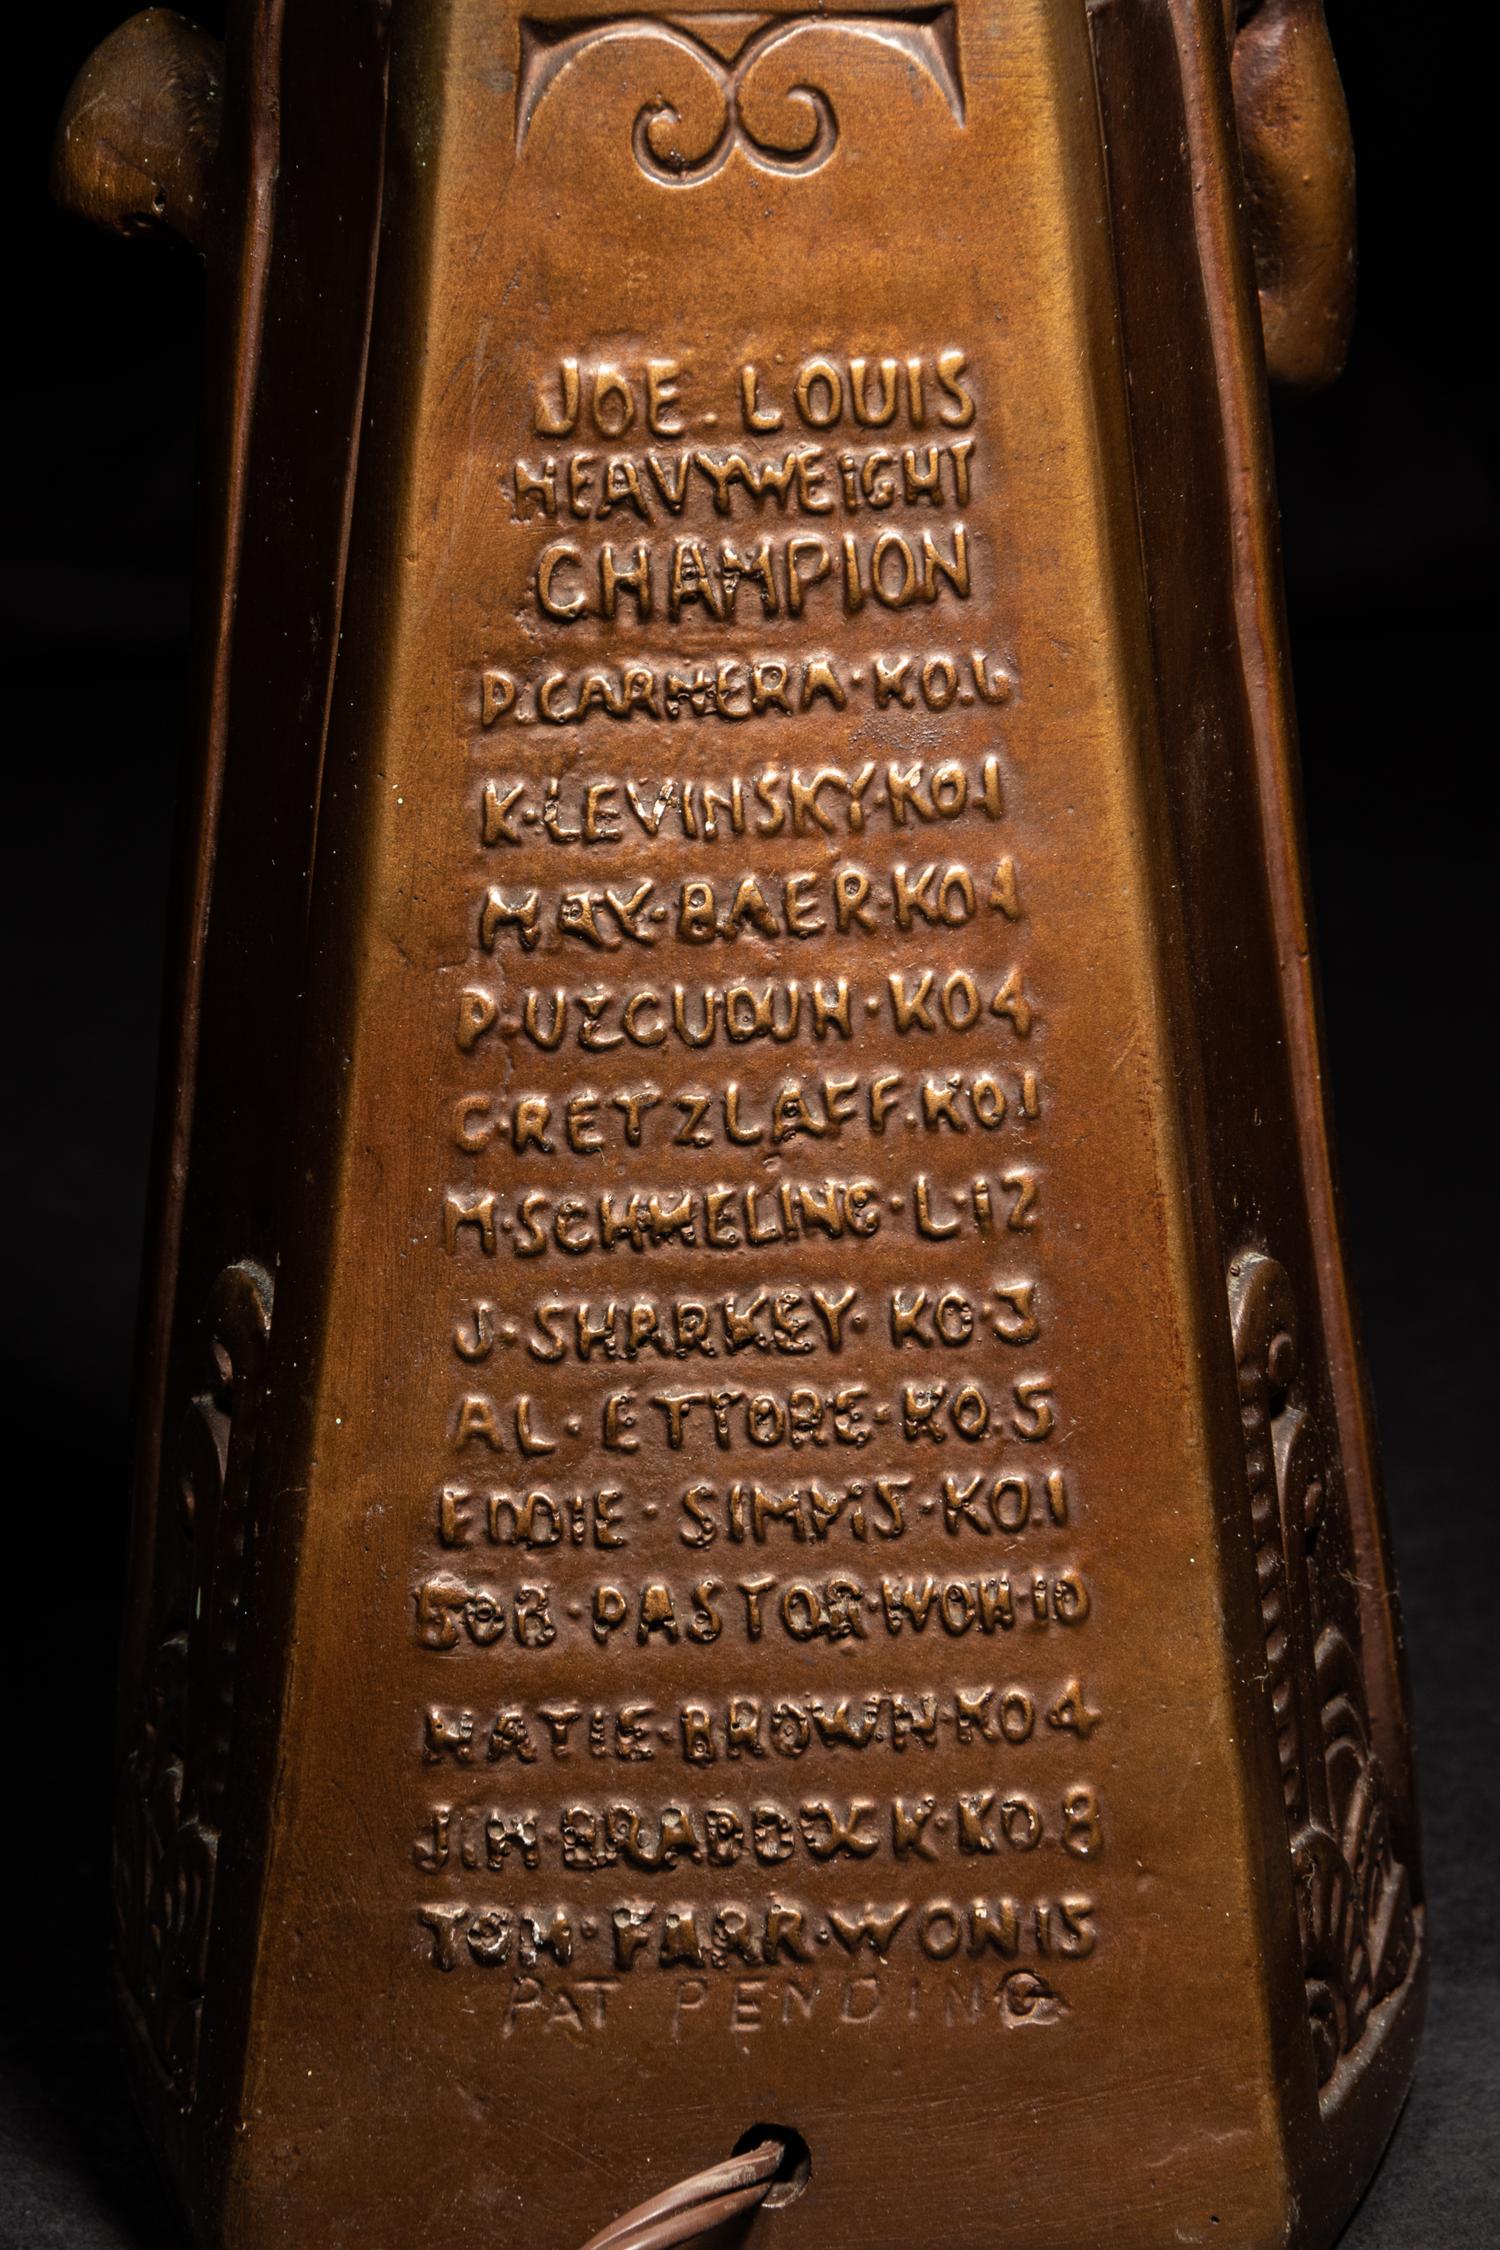 JOE. LOUIS
HEAVYWEIGHT
CHAMPION
P.CARNERA·KO.6
K·LEVINSKY·KO·1
MAX·BAER·KO 4
P·UZCUDUN·KO4
C·RETZLAFF.KO.1
M·SCHMELING·L·12
J·SHARKEY·KO·3
AL·ETTORE·KO.5
EDDIE·SIMMS·KO.1
BOB·PASTOR·WON·10
NATIE·BROWN·KO 4
JIM·BRADDOCK·KO.8
TOM·FARR·WON15
PAT PENDING